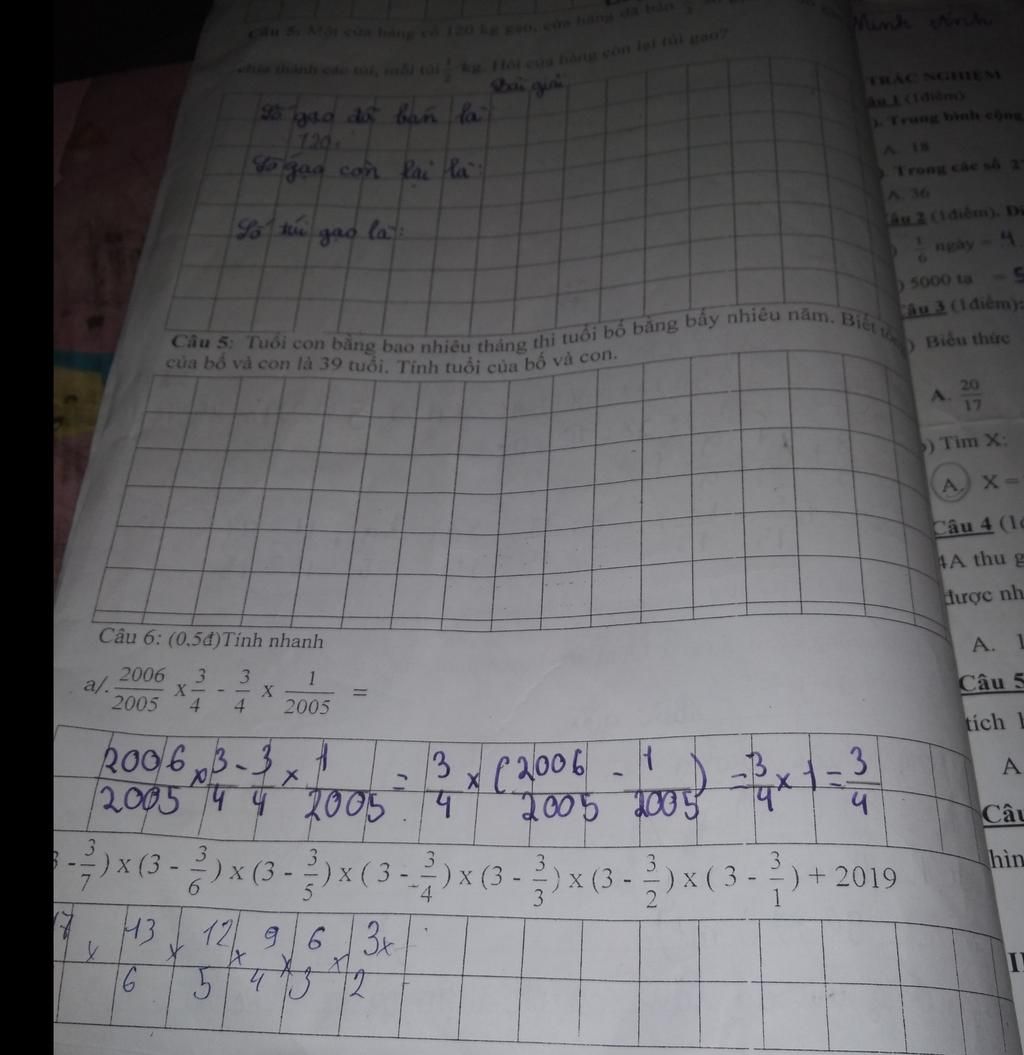 Câu 5: Một cửa hàng có 120 kg gạo, cửa hàng đã bán
chia thành các túi, mỗi túi kg. Hỏi cửa hàng còn lại túi gạo?
Bài giải
Số gạo đã bán là
120
Số gạo còn lại là:
Số túi gạo là:
Câu 5: Tuổi con bằng bao nhiêu tháng thì tuổi bố bằng bấy nhiêu năm. Biết
của bố và con là 39 tuổi. Tính tuổi của bố và con.
Câu 6: (0,5đ)Tính nhanh
a/. 2006/2005 x 3/4 - 3/4 x 1/2005 =
2006/2005 x 3/4 - 3/4 x 1/2005 = 3/4 x (2006/2005 - 1/2005) = 3/4 x 1 = 3/4
- 3/7) x (3 - 3/6) x (3 - 3/5) x ( 3 - 3/4) x (3 - 3/3) x (3 - 3/2) x ( 3 - 3/1) + 2019
x 13/6 x 12/5 x 9/4 x 6/3 x 3/2 x
Minh
TRẮC NGHIỆM
(1điểm)
Trung bình cộng
A. 18
Trong các số
A. 36
Câu 2 (1điểm).
1/6 ngày = 4
5000 tạ = 5
Câu 3 (1điểm):
Biểu thức
A. 20/17
) Tìm X:
A. X =
Câu 4
4A thu
được
A.
Câu 5
tích
A